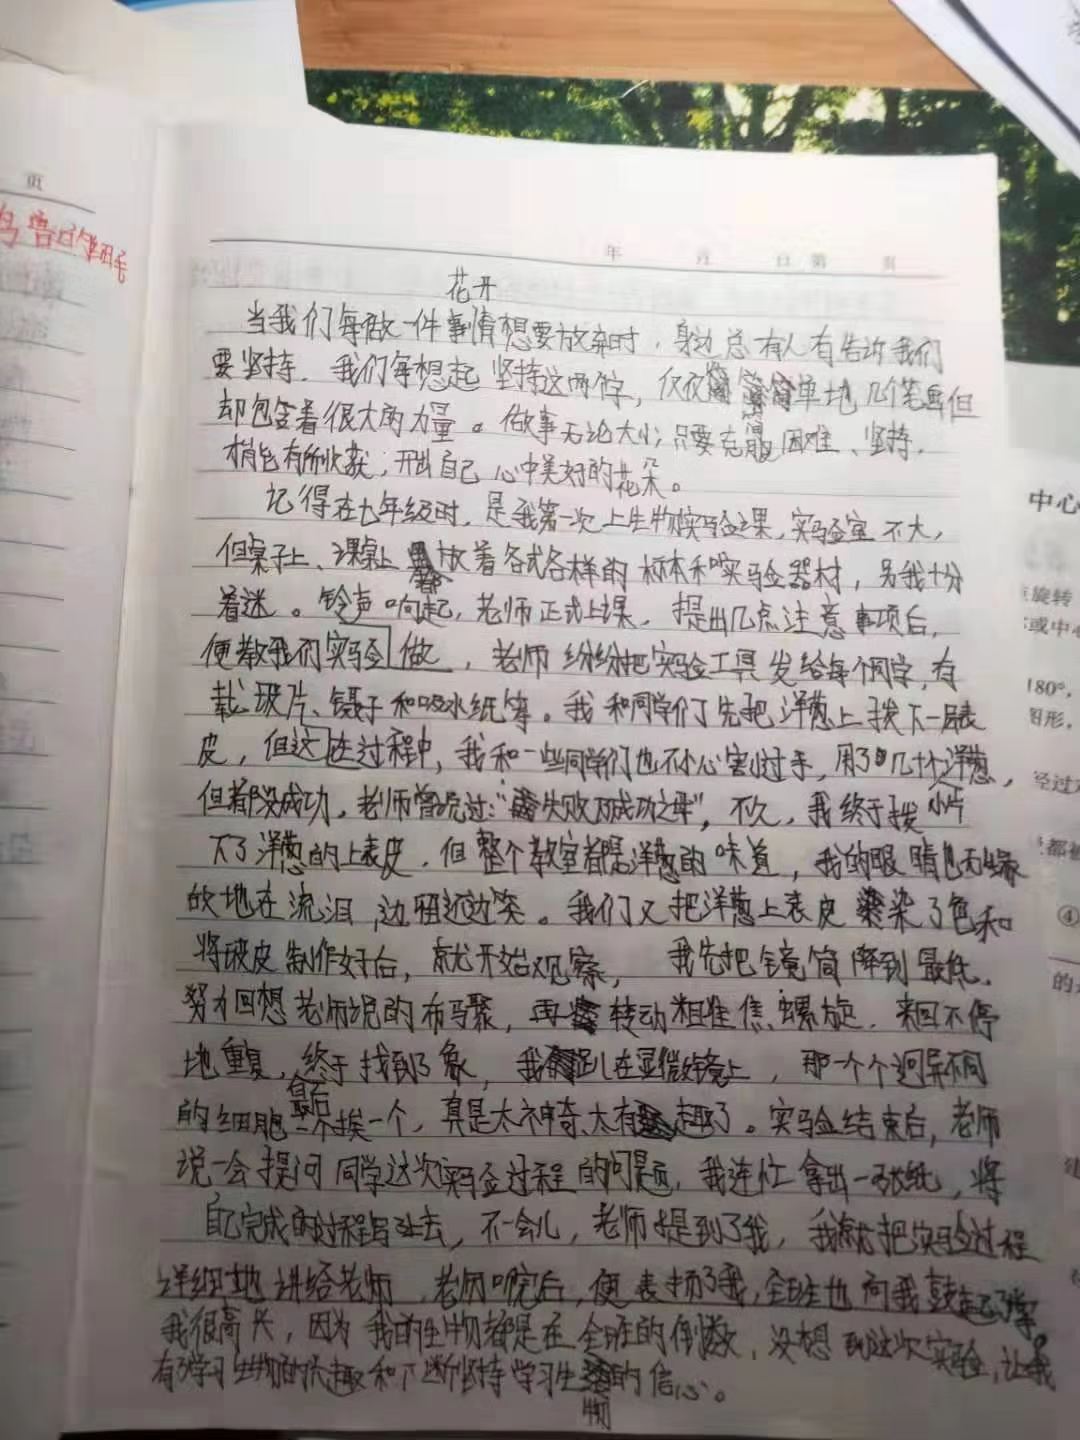 页
鸟兽的细毛
年 月 日 第 页
花开
当我们每做一件事情想要放弃时，身边总有人有告诉我们
要坚持。我们每想起坚持这两个字，仅仅简单地几个笔画但
却包含着很大的力量。做事无论大小，只要克服困难、坚持，
稍也有所收获，开出自己心中美好的花朵。
记得在七年级时，是我第一次上生物实验课，实验室不大，
但桌子上、课桌上都放着各式各样的标本和实验器材，另我十分
着迷。铃声响起，老师正式上课，提出几点注意事项后，
便教我们实验做，老师纷纷把实验工具发给每个同学，有
载玻片、镊子和吸水纸等。我和同学们先把洋葱上拨下一层表
皮，但这在过程中，我和一些同学们也不小心割过手，用了几十片洋葱，
但都没成功。老师曾说过：“失败乃成功之母”，不久，我终于拨
下了洋葱的上表皮，但整个教室都是洋葱的味道，我的眼睛也无缘
故地在流泪，边抹边笑。我们又把洋葱上表皮染了色和
将玻皮制作好后，就开始观察，我先把镜筒降到最低，
努力回想老师说的布马聚，再转动粗准焦螺旋，来回不停
地重复，终于找到了象，我趴在显微镜上，那一个个迥异不同
的细胞一个挨一个，真是太神奇、太有趣了。实验结束后，老师
说一会提问同学这次实验过程的问题，我连忙拿出一张纸，将
自己完成的过程写上去，不一会儿，老师提到了我，我就把实验过程
详细地讲给老师，老师听完后，便表扬了我，全班也向我鼓起了掌。
我很高兴，因为我的生物都是在全班的倒数，没想到这次实验，让我
有了学习生物的乐趣和不断坚持学习生物的信心。
中心
旋转
或中心
180°，
图形，
经过
都被
④
的